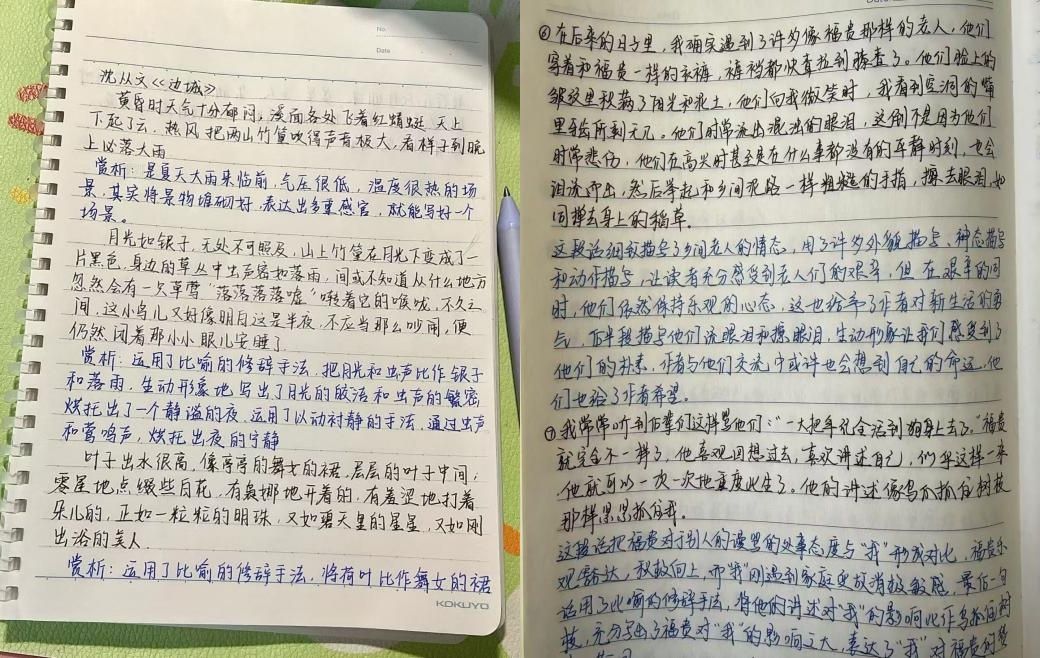 No.
Date
沈从文《边城》
黄昏时天气十分郁闷,溪面各处飞着红蜻蜓,天上
下起了云,热风把两山竹篁吹得声音极大,看样子到晚
上必落大雨
赏析:是夏天大雨来临前,气压很低,温度很热的场
景,其实将景物堆砌好,表达出多重感官,就能写好一个
场景。
月光如银子,无处不可照及,山上竹篁在月光下变成了一
片黑色,身边的草丛中虫声密如落雨,间或不知道从什么地方
忽然会有一只草莺“落落落落嘘”啭着它的喉咙,不久之
间,这小鸟儿又好像明白这是半夜,不应当那么吵闹,便
仍然闭着那小小眼儿安睡了
赏析:运用了比喻的修辞手法,把月光和虫声比作银子
和落雨,生动形象地写出了月光的皎洁和虫声的繁密
烘托出了一个静谧的夜,运用了以动衬静的手法,通过虫声
和莺鸣声,烘托出夜的宁静
叶子出水很高,像亭亭的舞女的裙,层层的叶子中间,
零星地点缀些白花,有袅娜地开着的,有羞涩地打着
朵儿的,正如一粒粒的明珠,又如碧天里的星星,又如刚
出浴的美人
赏析:运用了比喻的修辞手法,将荷叶比作舞女的裙
KOKUYO
⑥在后来的日子里,我确实遇到了许多像福贵那样的老人,他们
穿着和福贵一样的衣裤,裤裆都快耷拉到膝盖了。他们脸上的
皱纹里积满了阳光和泥土,他们向我微笑时,我看到空洞的嘴
里牙齿所剩无几。他们时常流出混浊的眼泪,这倒不是因为他们
时常悲伤,他们在高兴时甚至是在什么事都没有的平静时刻,也会
泪流而出,然后举起和乡间泥路一样粗糙的手指,擦去眼泪,如
同掸去身上的稻草。
这段话细致描写了乡间老人的情态,用了许多外貌描写、神态描写
和动作描写,让读者充分感受到老人们的艰辛,但在艰辛的同
时,他们依然保持乐观的心态,这也给予了作者对新生活的勇
气,下半段描写他们流眼泪和擦眼泪,生动形象让我们感受到了
他们的朴素,作者与他们交流中或许也会想到自己的命运,他
们也给了作者希望。
⑦我常常听到后辈们这样骂他们:“一大把年纪全活到狗身上去了。”福贵
就完全不一样了,他喜欢回想过去,喜欢讲述自己,似乎这样一来
他就可以一次一次地重度此生了。他的讲述像鸟爪抓住树枝
那样紧紧抓住我。
这段话把福贵对于别人的谩骂的处事态度与“我”形成对比,福贵乐
观豁达,积极向上,而“我”刚遇到家庭变故消极敏感,最后一句
话用了比喻的修辞手法,将他的讲述对“我”的影响比作鸟抓住树
枝,充分写出了福贵对“我”的影响之大,表达了“我”对福贵的